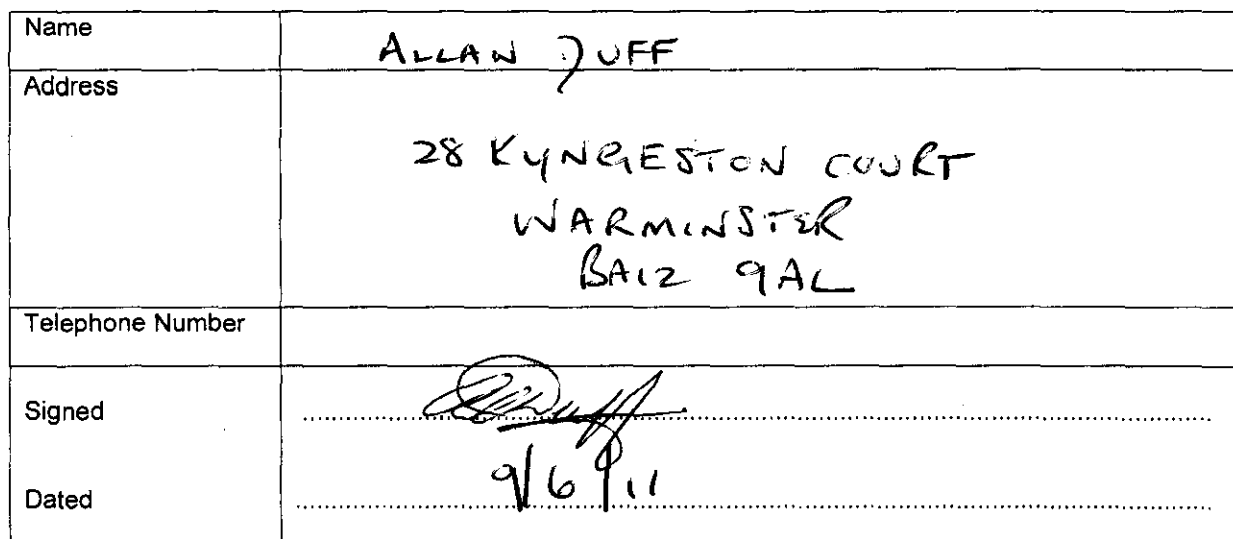 Name ALLAN DUFF
Address
28 KYNGESTON COURT
WARMINSTER
BA12 9AL
Telephone Number
Signed
Dated 9/6/11